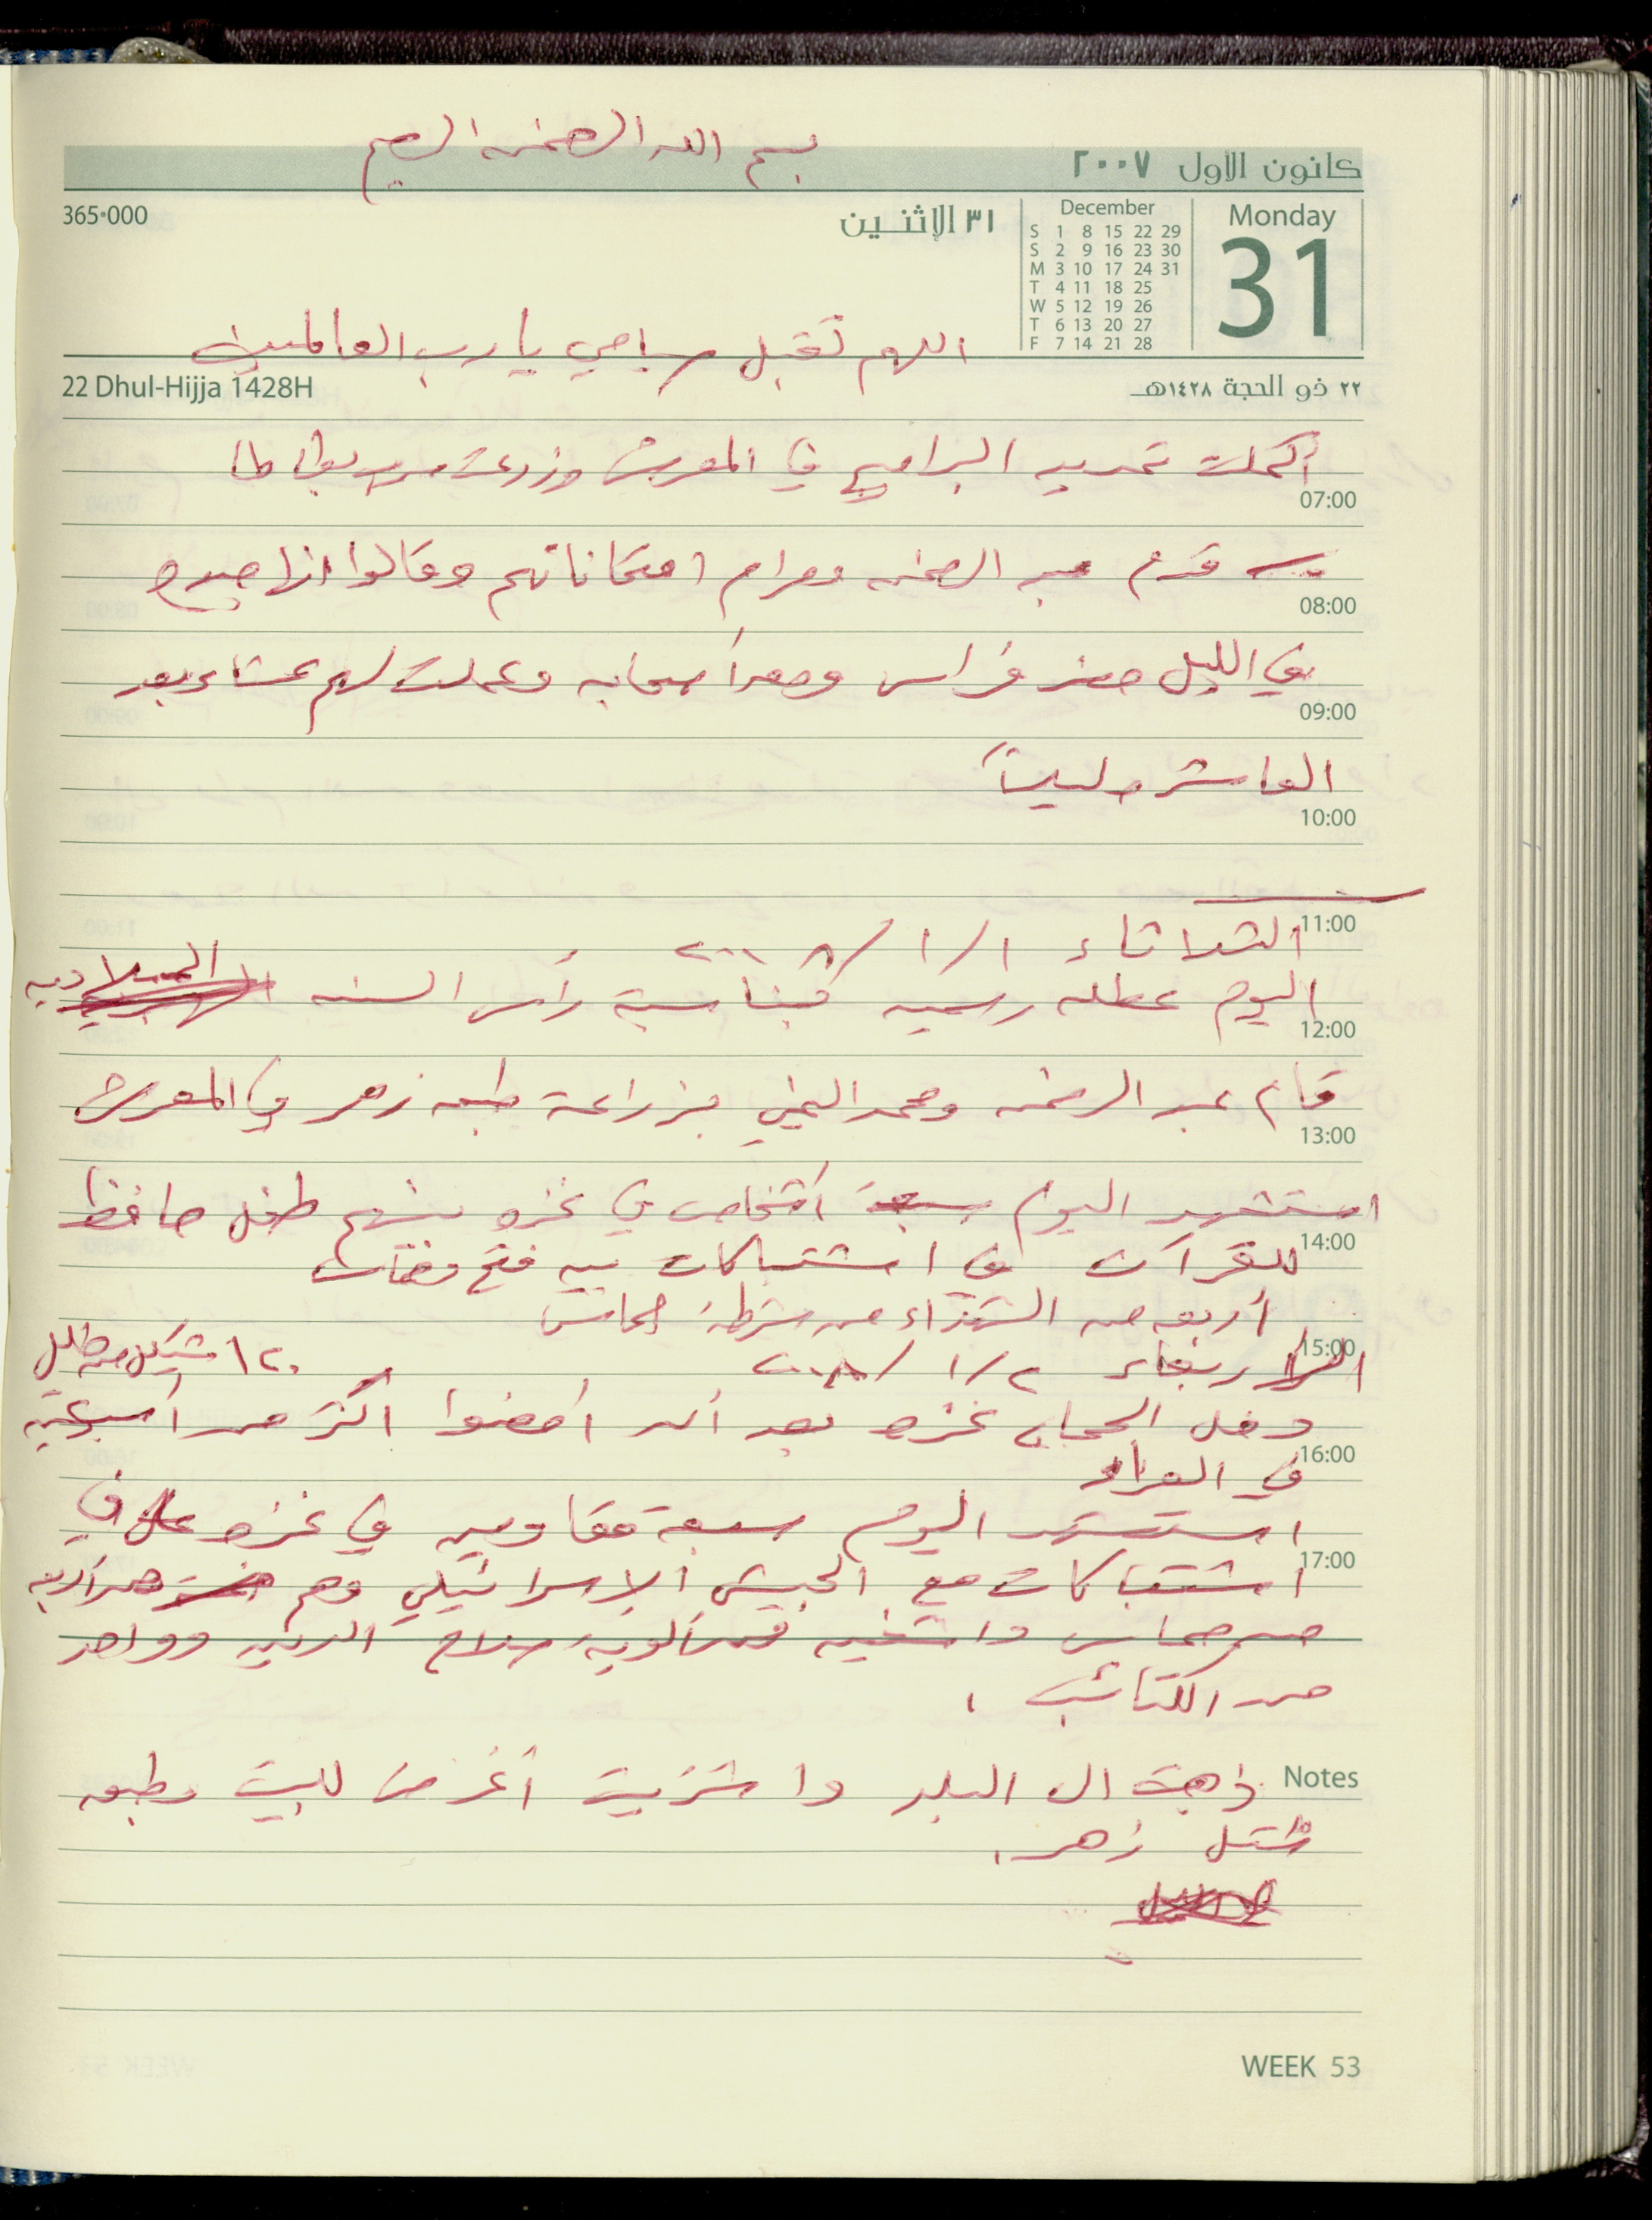 بسم الله الرحمن الرحيم
كانون الأول ٢٠٠٧
Monday
31
December
S 1 8 15 22 29
S 2 9 16 23 30
M 3 10 17 24 31
T 4 11 18 25
W 5 12 19 26
T 6 13 20 27
F 7 14 21 28
٣١ الإثنـين
365-000
اللهم تقبل يا رب العالمين
٢٢ ذو الحجة ١٤٢٨هـ
22 Dhul-Hijja 1428H
أكملت تمديد البرابيج في المعرش وزرعت بطاطا
07:00
قدم عبد الرحمن ومرام امتحاناتهم وقالوا انها جيده
08:00
في الليل حضر فراس ومعه أصحابه وعملت لهم عشاء بعد
09:00
العاشره ليلاً
10:00
11:00
الثلاثاء ١/١/٢٠٠٨
اليوم عطله رسميه بمناسبة رأس السنه الميلاديه
12:00
قام عبد الرحمن ومحمد بزراعة زهر في المعرش
13:00
استشهد اليوم سبعة أشخاص في غزه منهم طفل حافظ
14:00
للقرآن في اشتباكات بين فتح وحماس
أربعه من الشهداء من شرطة حماس
15:00
الاربعاء ٢/١/٢٠٠٨
دخل الحجاج غزه بعد أن أمضوا أكثر من أسبوعين
16:00
في العراء
استشهد اليوم سبعة مقاومين في غزه في
17:00
اشتباكات مع الجيش الإسرائيلي وهم أربعه
من حماس واثنين من ألوية صلاح الدين وواحد
من الكتائب .
Notes
ذهبت الى البلد واشتريت أغراض للبيت
شتل زهر .
WEEK 53